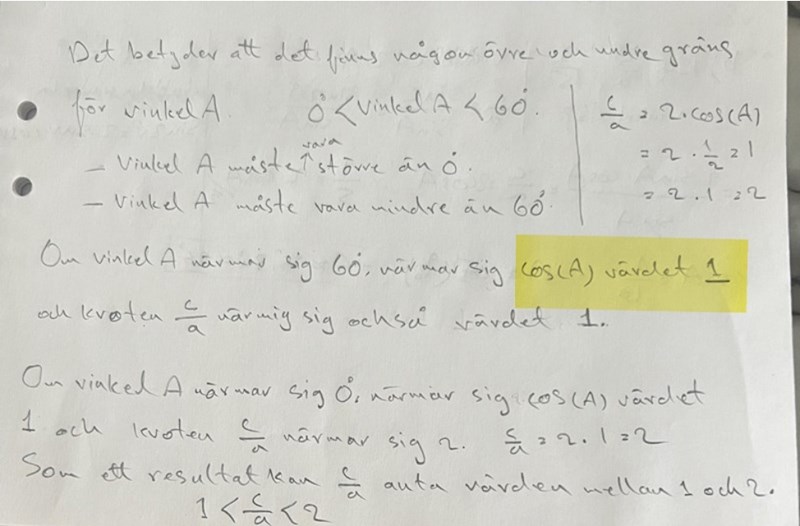 Det betyder att det finns någon övre och undre gräns
för vinkel A. 0° < vinkel A < 60°.
- Vinkel A måste vara större än 0°.
- Vinkel A måste vara mindre än 60°
c/a = 2·cos(A)
= 2 · 1/2 = 1
= 2 · 1 = 2
Om vinkel A närmar sig 60°, närmar sig cos(A) värdet 1
och kvoten c/a närmig sig också värdet 1.
Om vinkel A närmar sig 0°, närmar sig cos(A) värdet
1 och kvoten c/a närmar sig 2. c/a = 2 · 1 = 2
Som ett resultat kan c/a anta värden mellan 1 och 2.
1 < c/a < 2